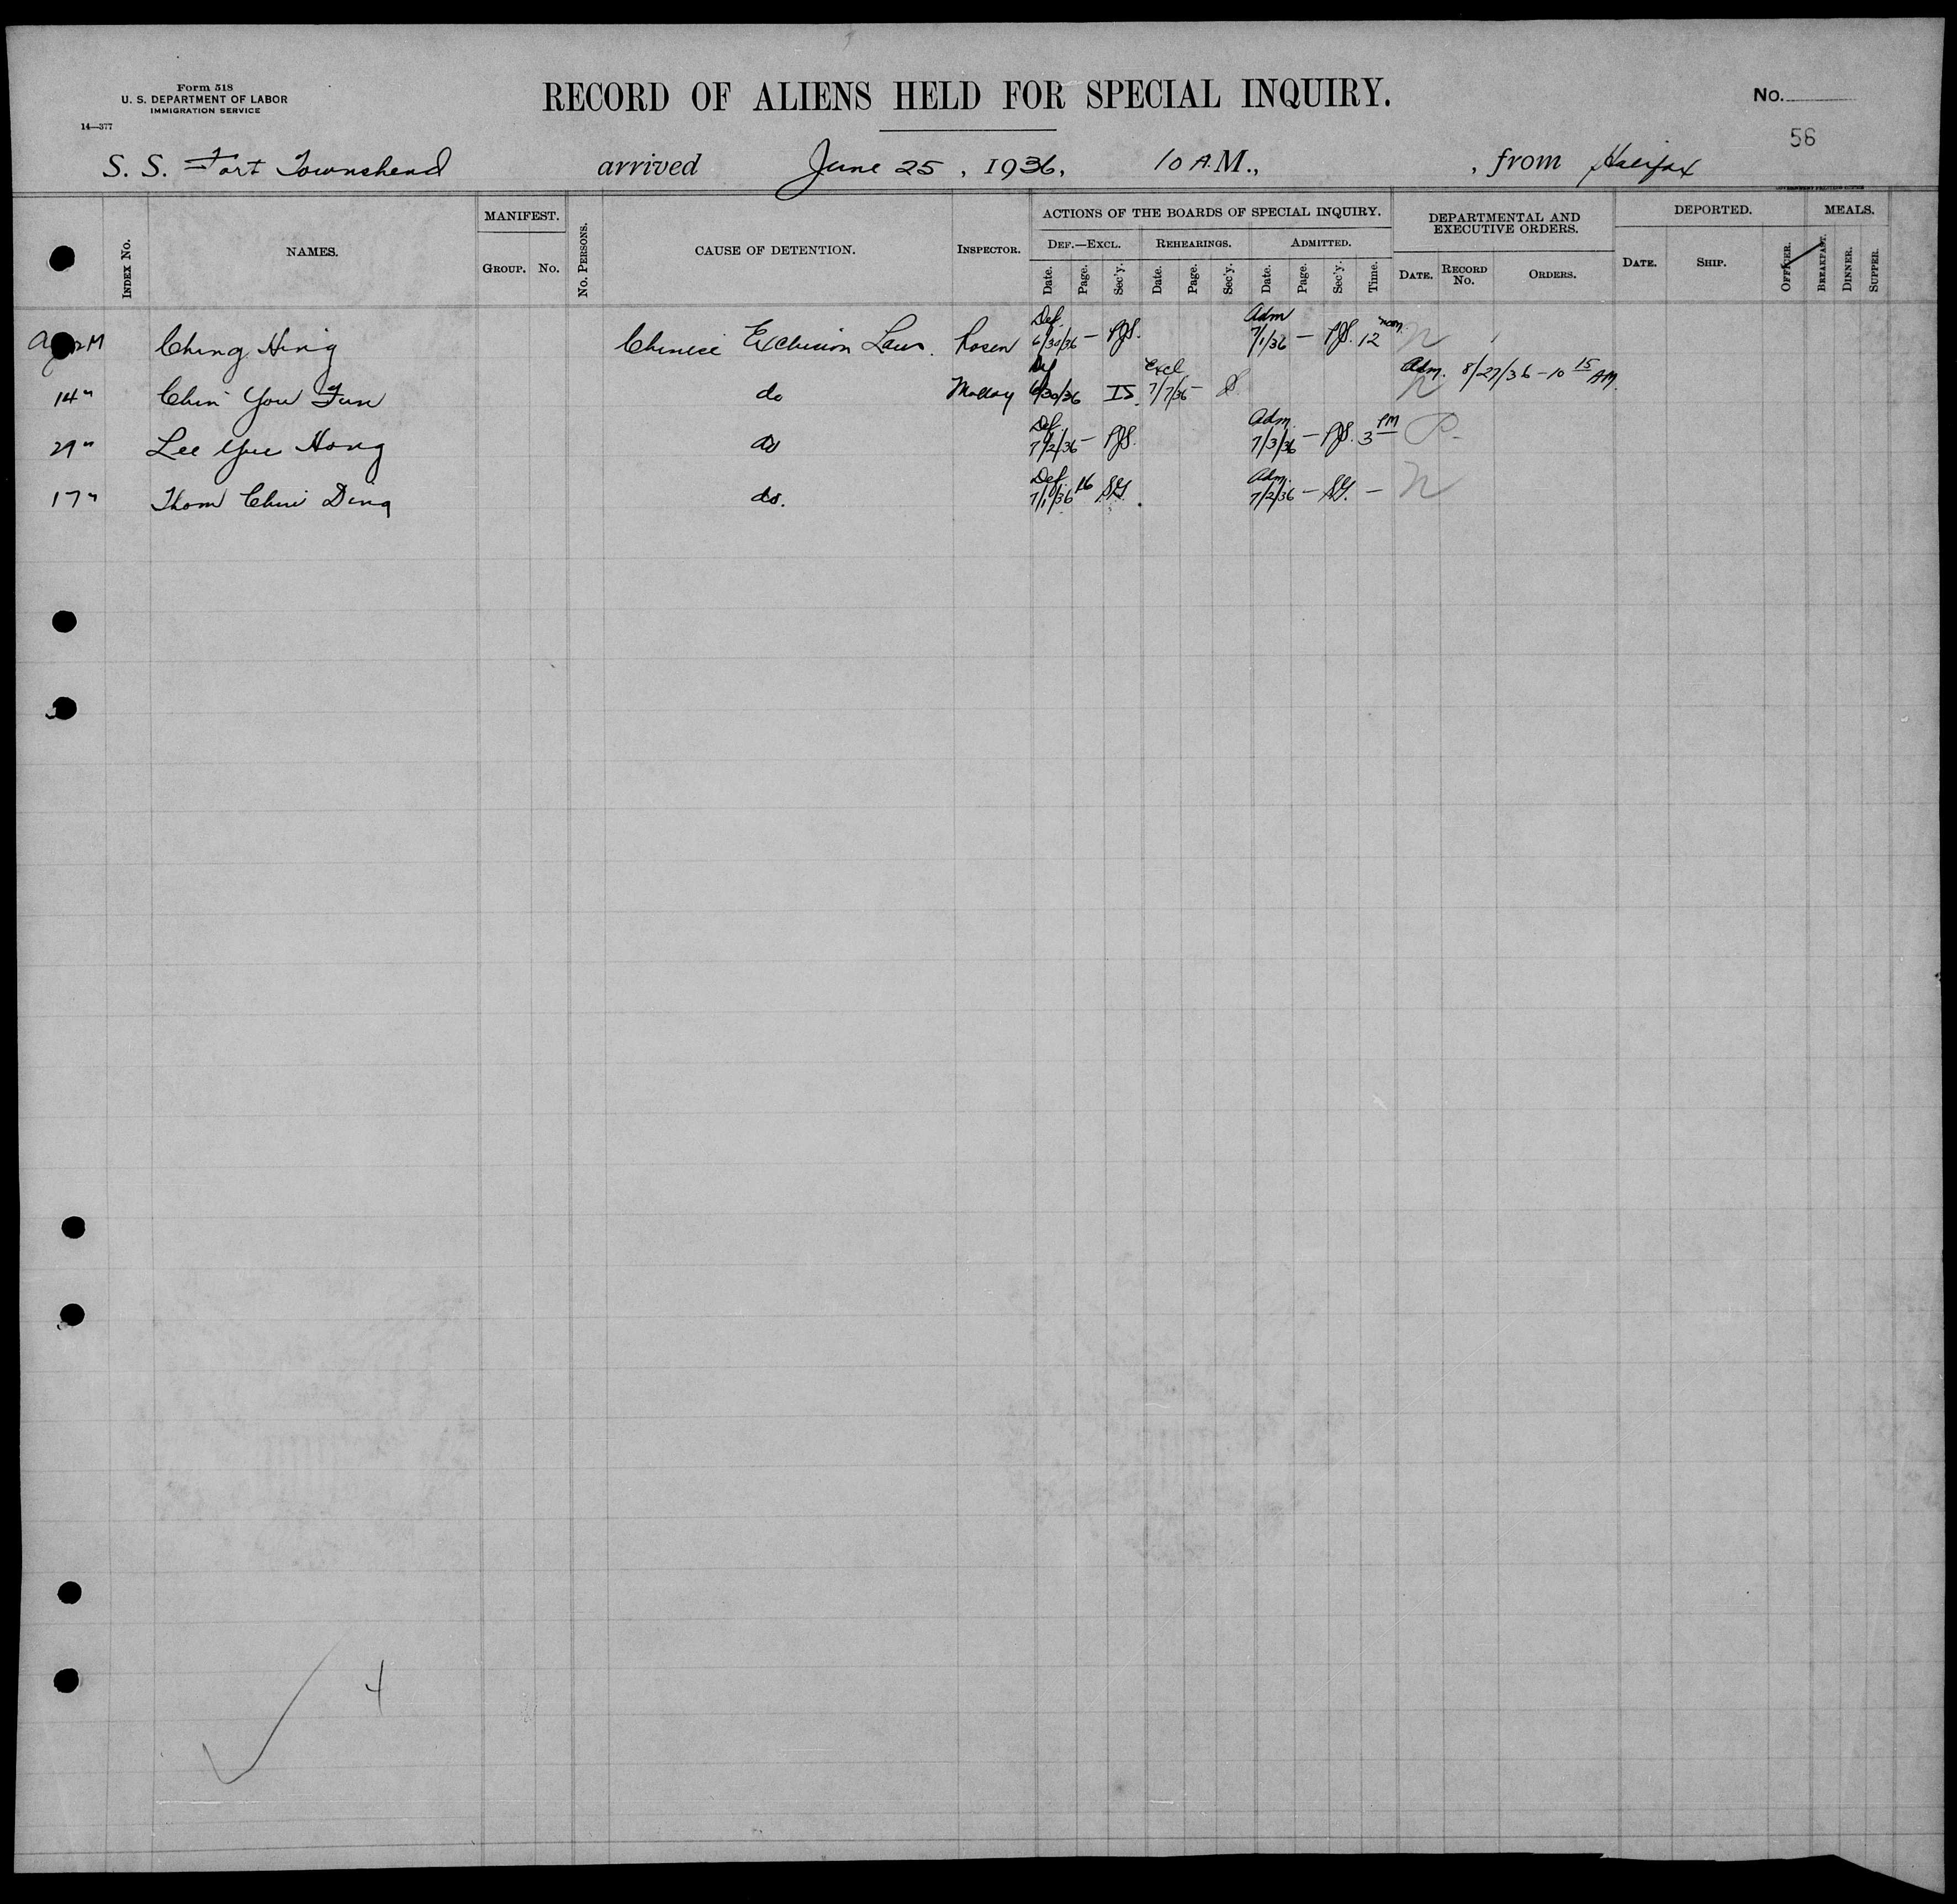 Form 518
U. S. DEPARTMENT OF LABOR
IMMIGRATION SERVICE
14—377
RECORD OF ALIENS HELD FOR SPECIAL INQUIRY.
No.
56
S. S. Fort Townshend arrived June 25, 1936, 10 A.M., , from Halifax
GOVERNMENT PRINTING OFFICE
INDEX No.
NAMES.
MANIFEST.
GROUP. No.
No. PERSONS.
CAUSE OF DETENTION.
INSPECTOR.
ACTIONS OF THE BOARDS OF SPECIAL INQUIRY.
DEF.—EXCL. REHEARINGS. ADMITTED.
Date. Page. Sec'y. Date. Page. Sec'y. Date. Page. Sec'y. Time.
DEPARTMENTAL AND EXECUTIVE ORDERS.
DATE. RECORD No. ORDERS.
DEPORTED.
DATE. SHIP. OFFICER.
MEALS.
BREAKFAST. DINNER. SUPPER.
Ching Hing Chinese Exclusion Law. Rosen Def. 6/30/36 — PJS. Adm 7/1/36 — PJS. 12 noon n
14" Chin You Fun do Def 6/30/36 IS. Excl 7/7/36 — S n Adm. 8/27/36 - 10 15 AM.
29" Lee Yue Hong do Def. 7/2/36 — PJS. Adm. 7/3/36 — PJS. 3 PM P-
17" Thom Chui Ding do. Def. 7/1/36 16 SG. Adm. 7/2/36 — SG. — n
4